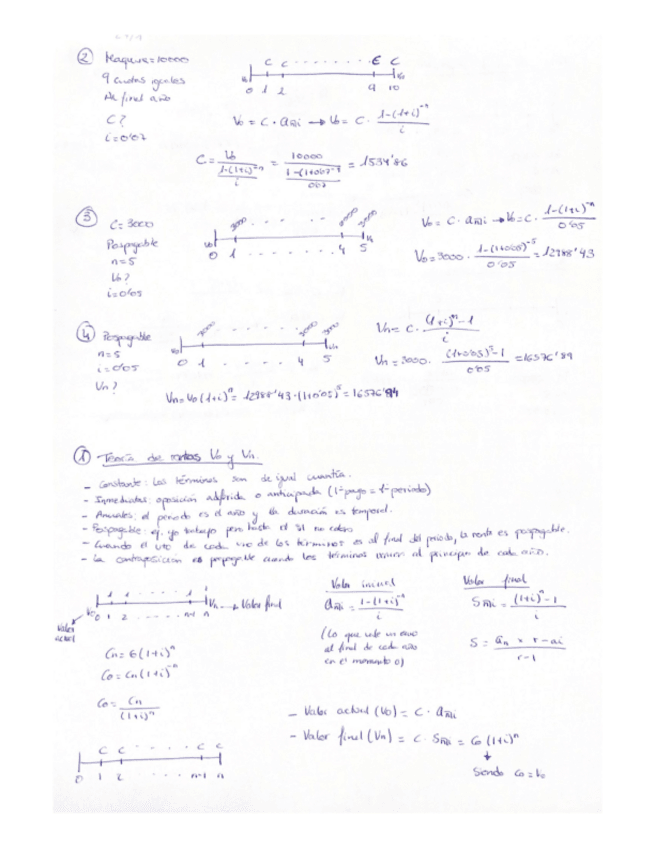 ② Maquina = 10000
9 cuotas iguales
Al final año
C?
i = 0'07
C C C C
0 1 2 9 10
V₀ = C · a n̅|i → V₀ = C · (1-(1+i)⁻ⁿ)/i
C = V₀/((1-(1+i)⁻ⁿ)/i) = 10000/((1-(1+0'07)⁻⁹)/0'07) = 1534'86
③ C = 3000
Pospagable
n = 5
V₀?
i = 0'05
3000 3000 3000
V₀ 0 1 4 5 Vn
V₀ = C · a n̅|i → V₀ = C · (1-(1+i)⁻ⁿ)/0'05
V₀ = 3000 · (1-(1+0'05)⁻⁵)/0'05 = 12988'43
④ Pospagable
n = 5
i = 0'05
Vn?
3000 3000 3000
V₀ 0 1 4 5 Vn
Vn = C · ((1+i)ⁿ-1)/i
Vn = 3000 · ((1+0'05)⁵-1)/0'05 = 16576'89
Vn = V₀(1+i)ⁿ = 12988'43 · (1+0'05)⁵ = 16576'94
① Teoría de rentas V₀ y Vn.
- Constante: Los términos son de igual cuantía.
- Inmediatas: oposición a diferida o anticipada (1º pago = 1º periodo)
- Anuales: el periodo es el año y la duración es temporal.
- Pospagable: ej. yo trabajo pero hasta el 31 no cobro
- Cuando el vto de cada uno de los términos es al final del periodo, la renta es pospagable.
- La contraposición es prepagable cuando los términos vencen al principio de cada año.
V₀ 0 1 2 n-1 n Vn → Valor final
Valor actual
Valor inicial
a n̅|i = (1-(1+i)⁻ⁿ)/i
(Lo que vale un euro
al final de cada año
en el momento 0)
Valor final
S n̅|i = ((1+i)ⁿ-1)/i
S = (an × r - ai)/(r-1)
Cn = C₀(1+i)ⁿ
C₀ = Cn(1+i)⁻ⁿ
C₀ = Cn/(1+i)ⁿ
- Valor actual (V₀) = C · a n̅|i
- Valor final (Vn) = C · S n̅|i = C₀(1+i)ⁿ
↓
Siendo C₀ = V₀
C C C C
0 1 2 n-1 n